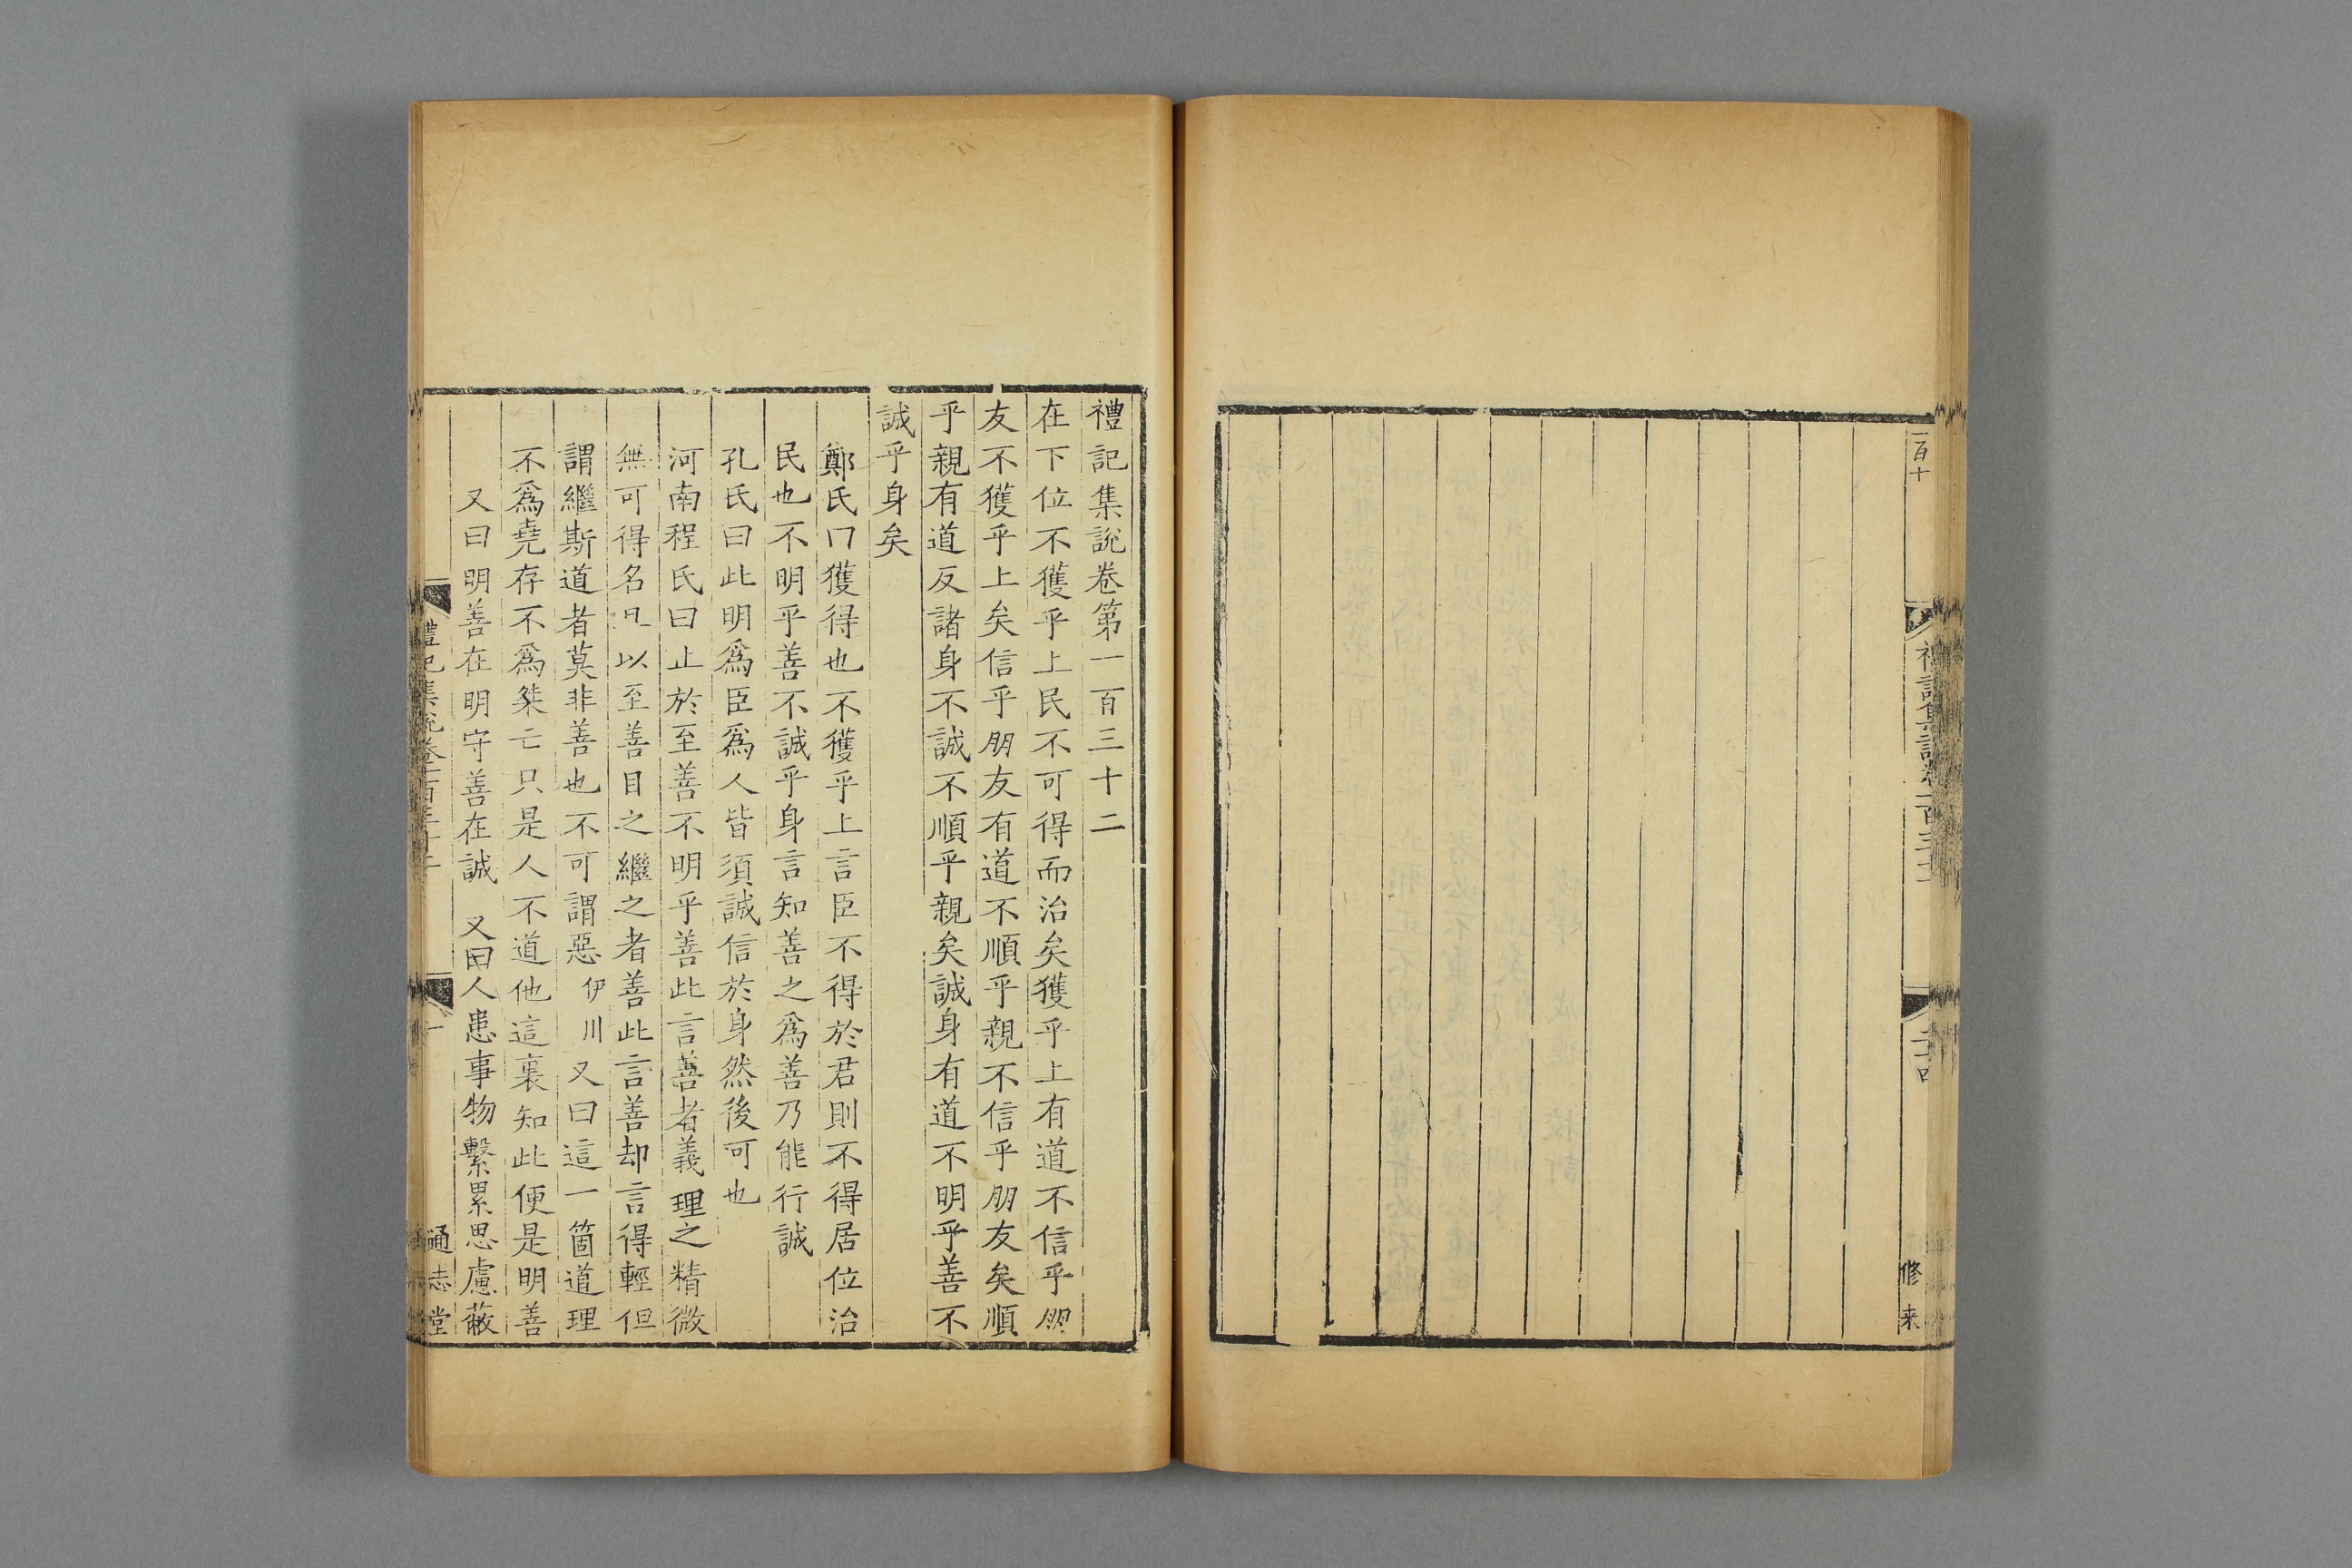 一百十
修来
禮記集說卷第一百三十二
在下位不獲乎上民不可得而治矣獲乎上有道不信乎朋
友不獲乎上矣信乎朋友有道不順乎親不信乎朋友矣順
乎親有道反諸身不誠不順乎親矣誠身有道不明乎善不
誠乎身矣
鄭氏曰獲得也不獲乎上言臣不得於君則不得居位治
民也不明乎善不誠乎身言知善之爲善乃能行誠
孔氏曰此明爲臣爲人皆須誠信於身然後可也
河南程氏曰止於至善不明乎善此言善者義理之精微
無可得名且以至善目之繼之者善此言善却言得輕但
謂繼斯道者莫非善也不可謂惡伊川又曰這一箇道理
不爲堯存不爲桀亡只是人不道他這裏知此便是明善
又曰明善在明守善在誠 又曰人患事物繫累思慮蔽
禮記集說卷一百三十二
一
通志堂